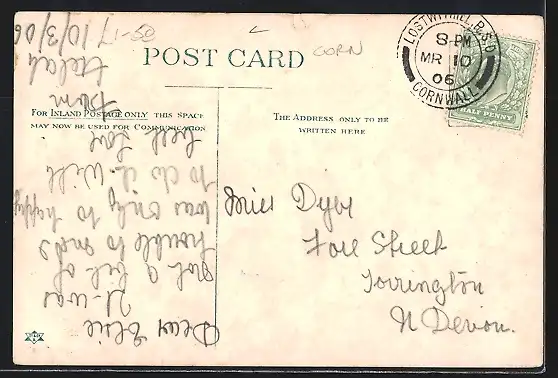 POST CARD
CORN
17-50
FOR INLAND POSTAGE ONLY THIS SPACE
MAY NOW BE USED FOR COMMUNICATION
THE ADDRESS ONLY TO BE
WRITTEN HERE
LOSTWITHIEL B.S.O
8-PM
MR 10
06
CORNWALL
HALF PENNY
Miss Dyer
Fore Street
Torrington
N Devon.
Dear Elsie
It was
not a bit of
trouble to and
was only to happy
to do it. With
best love
from
10/3/06